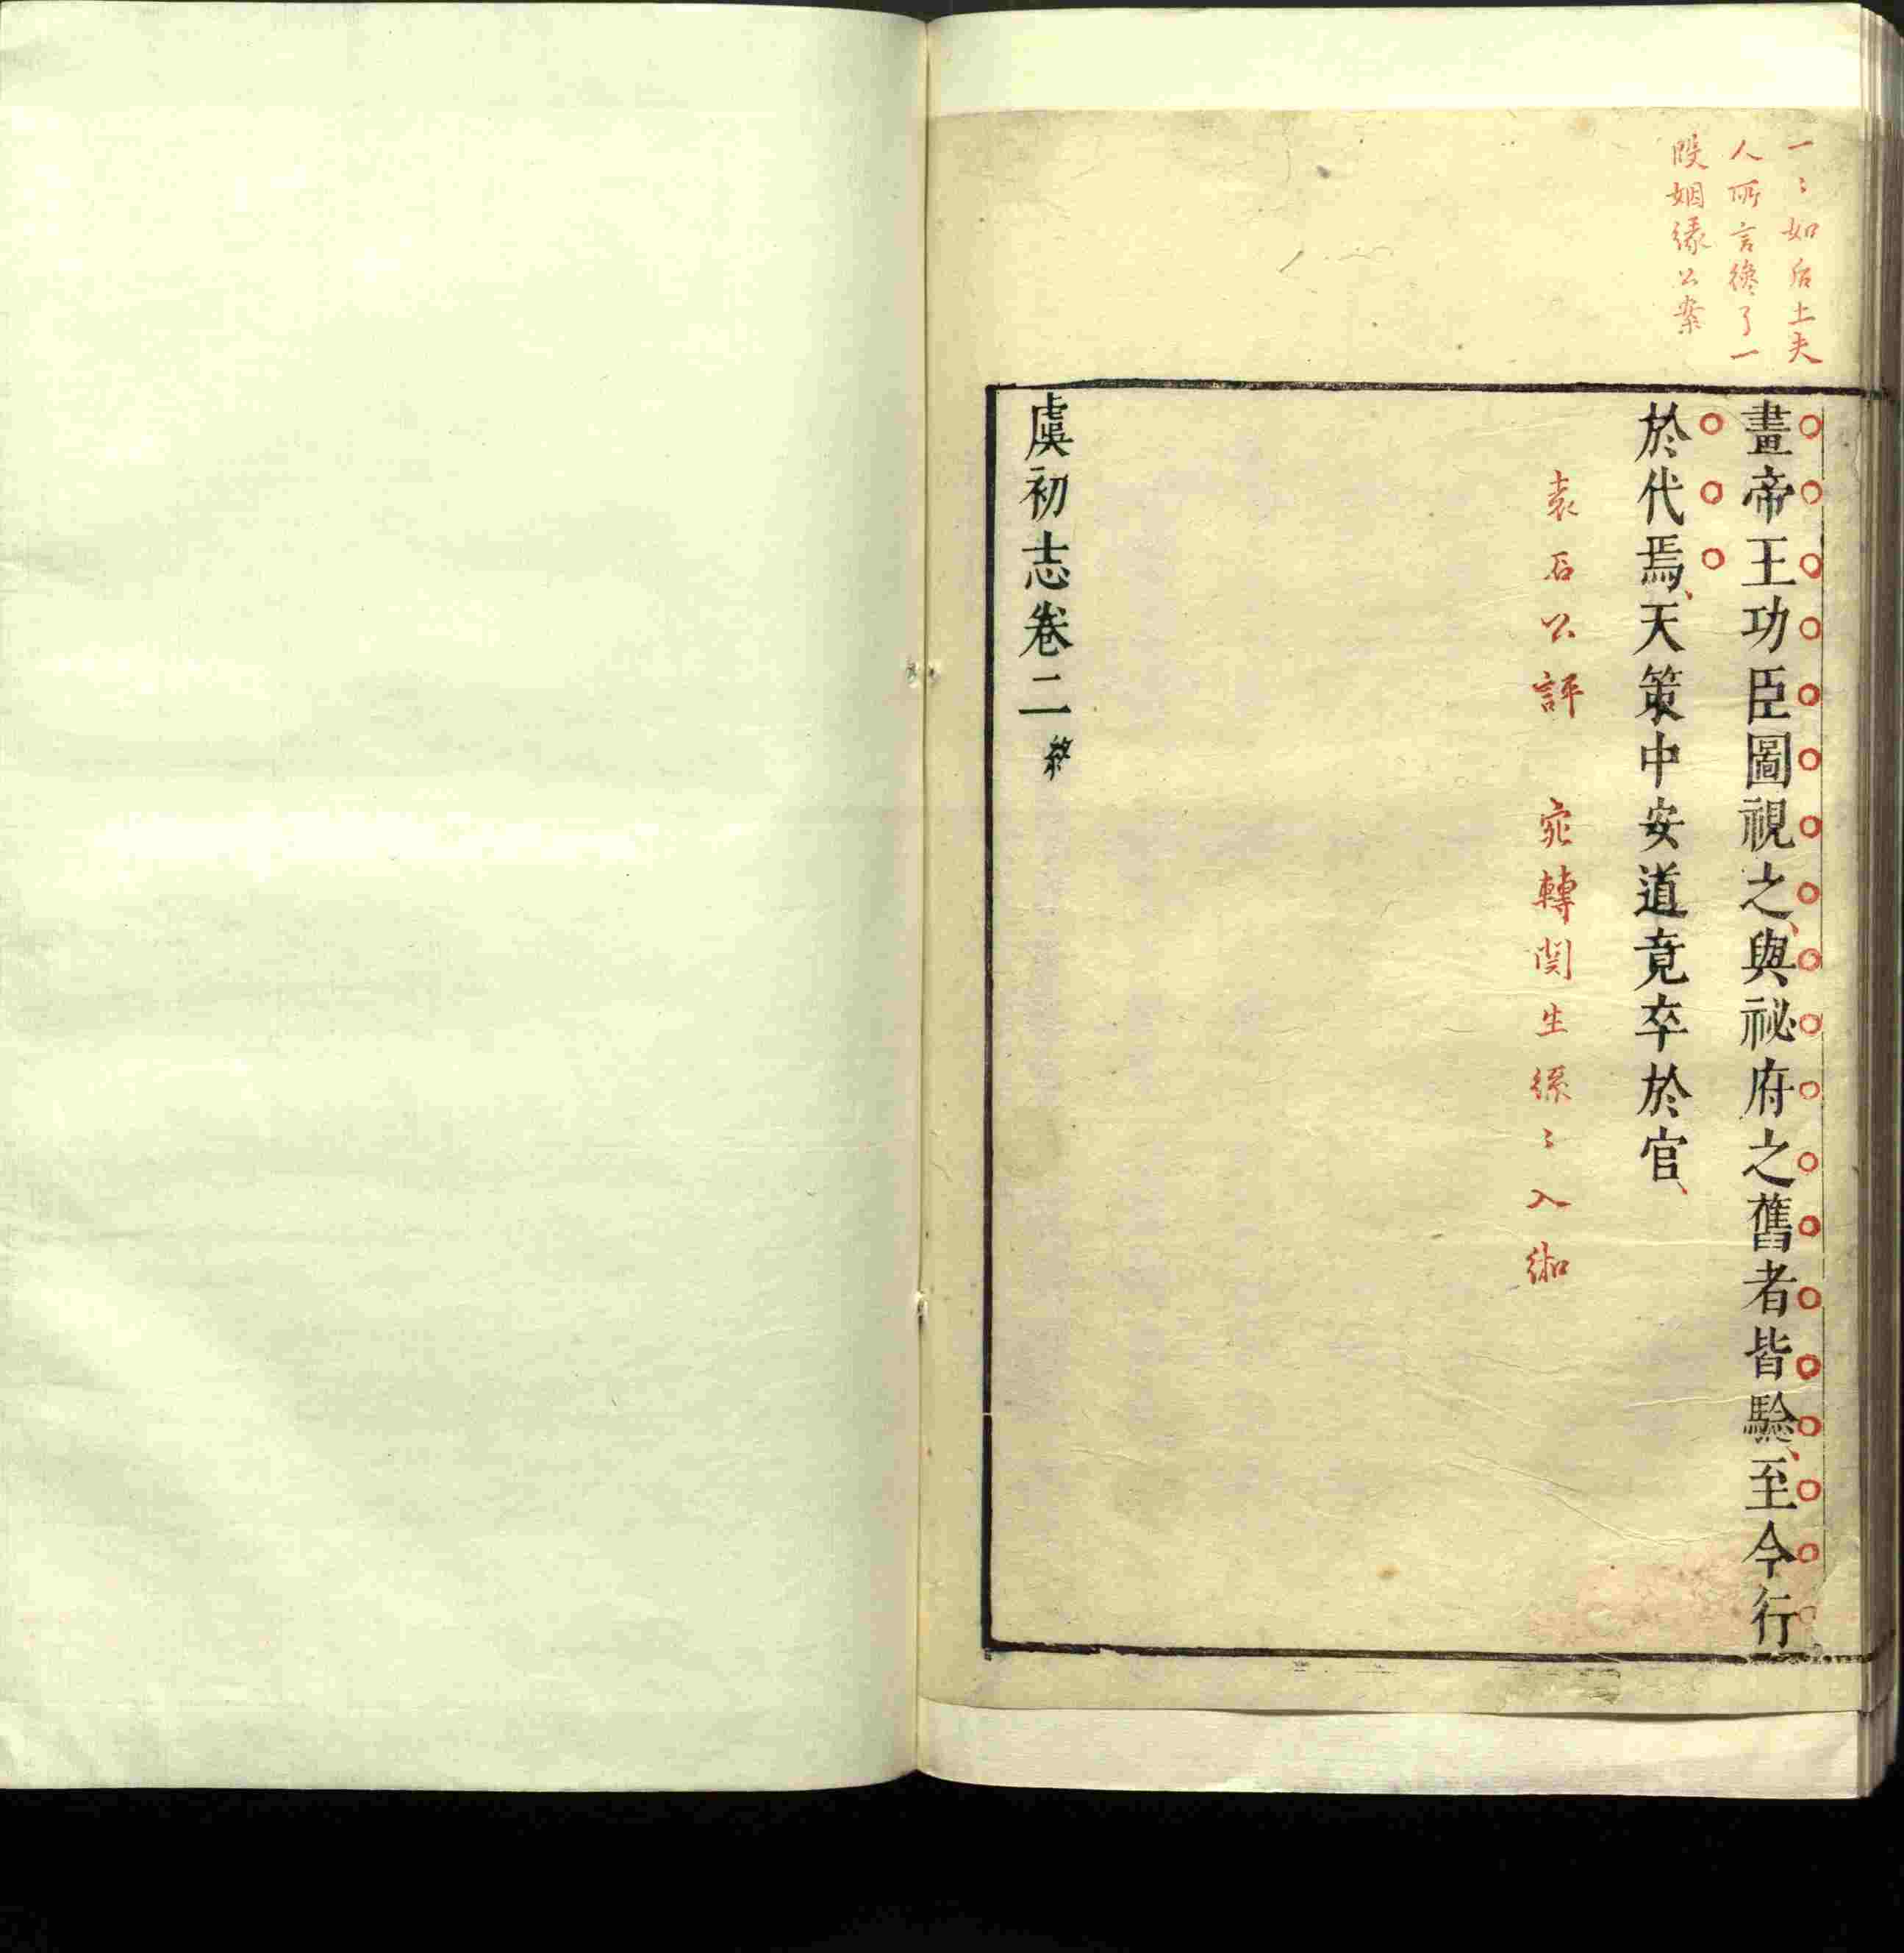 一〻如后土夫
人所言纔了一
段姻緣公案
畫帝王功臣圖視之與祕府之舊者皆驗至今行
於代焉天策中安道竟卒於官
袁石公評　宛轉関生絲〻入細
虞初志卷二終